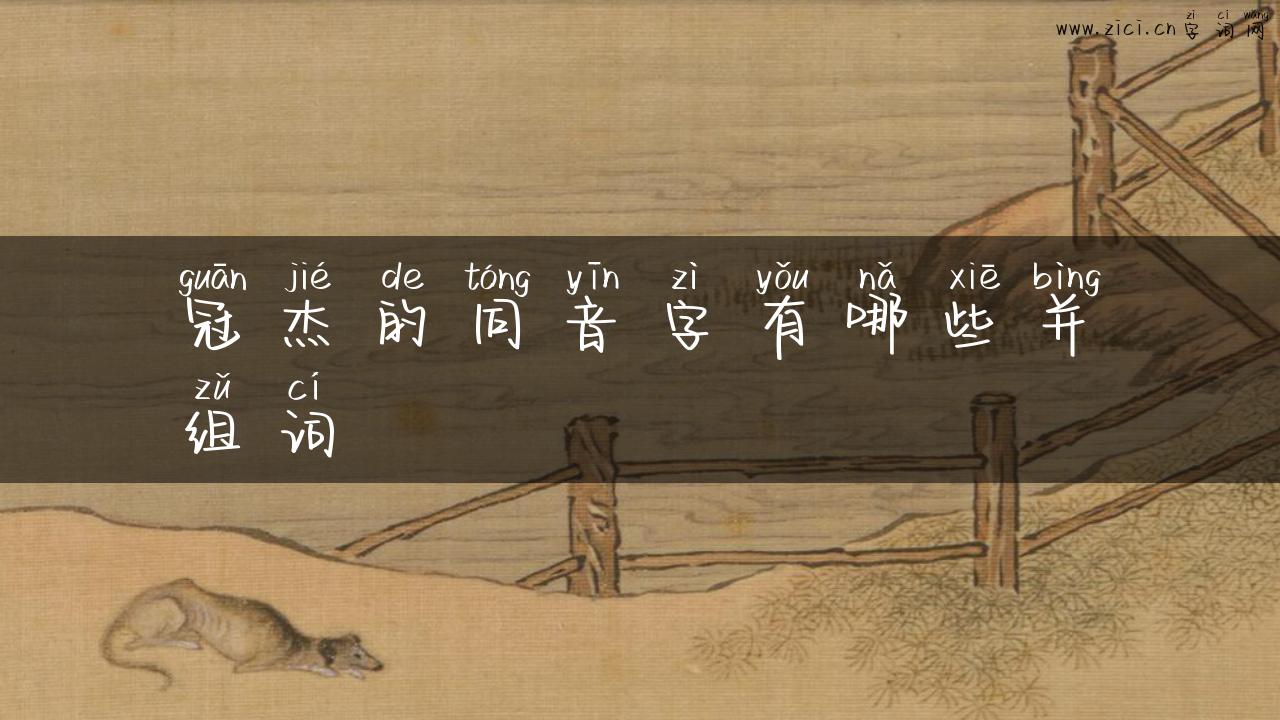 zi ci wang
www.zici.cn字词网
guān jié de tóng yīn zì yǒu nǎ xiē bìng
冠杰的同音字有哪些并
zǔ cí
组词